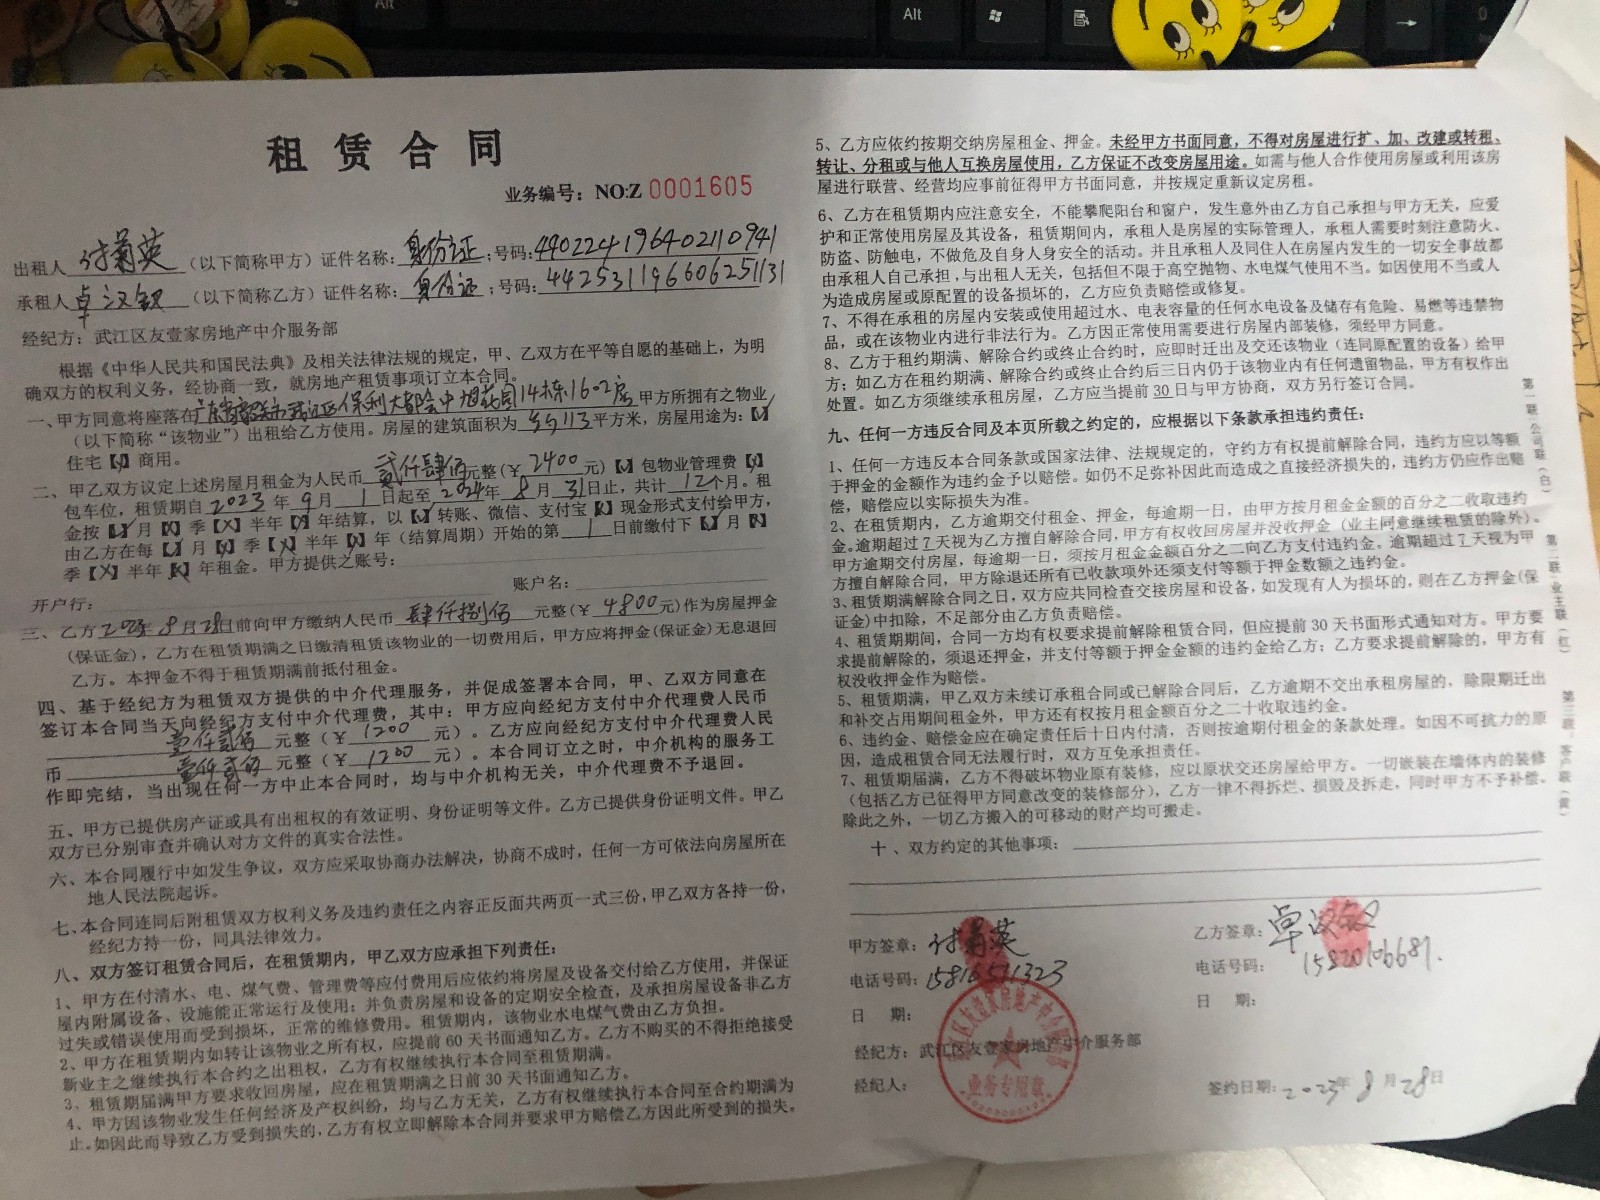 租赁合同
业务编号：NO:Z 0001605
出租人 付菊英 （以下简称甲方）证件名称：身份证；号码：440224196402110941
承租人 卓汉钗 （以下简称乙方）证件名称：身份证；号码：442531196606251131
经纪方：武江区友壹家房地产中介服务部
根据《中华人民共和国民法典》及相关法律法规的规定，甲、乙双方在平等自愿的基础上，为明
确双方的权利义务，经协商一致，就房地产租赁事项订立本合同。
一、甲方同意将座落在广东省韶关市武江区保利大都会中旭花园14栋1602房甲方所拥有之物业
（以下简称“该物业”）出租给乙方使用。房屋的建筑面积为 113平方米，房屋用途为：【✓】
住宅【X】商用。
二、甲乙双方议定上述房屋月租金为人民币 贰仟肆佰 元整（¥ 2400 元）【✓】包物业管理费【X】
包车位，租赁期自 2023 年 9 月 1 日起至 2024年 8 月 31日止，共计 12个月。租
金按【✓】月【X】季【X】半年【X】年结算，以【✓】转账、微信、支付宝【X】现金形式支付给甲方，
由乙方在每【✓】月【X】季【X】半年【X】年（结算周期）开始的第 1 日前缴付下【✓】月【X】
季【X】半年【X】年租金。甲方提供之账号：
开户行： 账户名：
三、乙方2023年8月28日前向甲方缴纳人民币 肆仟捌佰 元整（¥ 4800元）作为房屋押金
（保证金），乙方在租赁期满之日缴清租赁该物业的一切费用后，甲方应将押金(保证金)无息退回
乙方。本押金不得于租赁期满前抵付租金。
四、基于经纪方为租赁双方提供的中介代理服务，并促成签署本合同，甲、乙双方同意在
签订本合同当天向经纪方支付中介代理费，其中：甲方应向经纪方支付中介代理费人民币
壹仟贰佰 元整（¥ 1200 元）。乙方应向经纪方支付中介代理费人民
币 壹仟贰佰 元整（¥ 1200 元）。本合同订立之时，中介机构的服务工
作即完结，当出现任何一方中止本合同时，均与中介机构无关，中介代理费不予退回。
五、甲方已提供房产证或具有出租权的有效证明、身份证明等文件。乙方已提供身份证明文件。甲乙
双方已分别审查并确认对方文件的真实合法性。
六、本合同履行中如发生争议，双方应采取协商办法解决，协商不成时，任何一方可依法向房屋所在
地人民法院起诉。
七、本合同连同后附租赁双方权利义务及违约责任之内容正反面共两页一式三份，甲乙双方各持一份，
经纪方持一份，同具法律效力。
八、双方签订租赁合同后，在租赁期内，甲乙双方应承担下列责任：
1、甲方在付清水、电、煤气费、管理费等应付费用后应依约将房屋及设备交付给乙方使用，并保证
屋内附属设备、设施能正常运行及使用；并负责房屋和设备的定期安全检查，及承担房屋设备非乙方
过失或错误使用而受到损坏，正常的维修费用。租赁期内，该物业水电煤气费由乙方负担。
2、甲方在租赁期内如转让该物业之所有权，应提前 60 天书面通知乙方。乙方不购买的不得拒绝接受
新业主之继续执行本合约之出租权，乙方有权继续执行本合同至租赁期满。
3、租赁期届满甲方要求收回房屋，应在租赁期满之日前 30 天书面通知乙方。
4、甲方因该物业发生任何经济及产权纠纷，均与乙方无关，乙方有权继续执行本合同至合约期满为
止。如因此而导致乙方受到损失的，乙方有权立即解除本合同并要求甲方赔偿乙方因此所受到的损失。
5、乙方应依约按期交纳房屋租金、押金。未经甲方书面同意，不得对房屋进行扩、加、改建或转租、
转让、分租或与他人互换房屋使用，乙方保证不改变房屋用途。如需与他人合作使用房屋或利用该房
屋进行联营、经营均应事前征得甲方书面同意，并按规定重新议定房租。
6、乙方在租赁期内应注意安全，不能攀爬阳台和窗户，发生意外由乙方自己承担与甲方无关，应爱
护和正常使用房屋及其设备，租赁期间内，承租人是房屋的实际管理人，承租人需要时刻注意防火、
防盗、防触电，不做危及自身人身安全的活动。并且承租人及同住人在房屋内发生的一切安全事故都
由承租人自己承担，与出租人无关，包括但不限于高空抛物、水电煤气使用不当。如因使用不当或人
为造成房屋或原配置的设备损坏的，乙方应负责赔偿或修复。
7、不得在承租的房屋内安装或使用超过水、电表容量的任何水电设备及储存有危险、易燃等违禁物
品，或在该物业内进行非法行为。乙方因正常使用需要进行房屋内部装修，须经甲方同意。
8、乙方于租约期满、解除合约或终止合约时，应即时迁出及交还该物业（连同原配置的设备）给甲
方；如乙方在租约期满、解除合约或终止合约后三日内仍于该物业内有任何遗留物品，甲方有权作出
处置。如乙方须继续承租房屋，乙方应当提前 30 日与甲方协商，双方另行签订合同。
九、任何一方违反合同及本页所载之约定的，应根据以下条款承担违约责任：
1、任何一方违反本合同条款或国家法律、法规规定的，守约方有权提前解除合同，违约方应以等额
于押金的金额作为违约金予以赔偿。如仍不足弥补因此而造成之直接经济损失的，违约方仍应作出赔
偿，赔偿应以实际损失为准。
2、在租赁期内，乙方逾期交付租金、押金，每逾期一日，由甲方按月租金金额的百分之二收取违约
金。逾期超过 7 天视为乙方擅自解除合同，甲方有权收回房屋并没收押金（业主同意继续租赁的除外）。
甲方逾期交付房屋，每逾期一日，须按月租金金额百分之二向乙方支付违约金。逾期超过 7 天视为甲
方擅自解除合同，甲方除退还所有已收款项外还须支付等额于押金数额之违约金。
3、租赁期满解除合同之日，双方应共同检查交接房屋和设备，如发现有人为损坏的，则在乙方押金(保
证金)中扣除，不足部分由乙方负责赔偿。
4、租赁期期间，合同一方均有权要求提前解除租赁合同，但应提前 30 天书面形式通知对方。甲方要
求提前解除的，须退还押金，并支付等额于押金金额的违约金给乙方；乙方要求提前解除的，甲方有
权没收押金作为赔偿。
5、租赁期满，甲乙双方未续订承租合同或已解除合同后，乙方逾期不交出承租房屋的，除限期迁出
和补交占用期间租金外，甲方还有权按月租金额百分之二十收取违约金。
6、违约金、赔偿金应在确定责任后十日内付清，否则按逾期付租金的条款处理。如因不可抗力的原
因，造成租赁合同无法履行时，双方互免承担责任。
7、租赁期届满，乙方不得破坏物业原有装修，应以原状交还房屋给甲方。一切嵌装在墙体内的装修
（包括乙方已征得甲方同意改变的装修部分），乙方一律不得拆烂、损毁及拆走，同时甲方不予补偿。
除此之外，一切乙方搬入的可移动的财产均可搬走。
十、双方约定的其他事项：
甲方签章：付菊英 乙方签章：卓汉钗
电话号码：15816511323 电话号码：15820106681.
日 期： 日 期：
经纪方：武江区友壹家房地产中介服务部
经纪人： 签约日期：2023年 8 月 28日
业务专用章
第一联：公司联（白） 第二联：业主联（红） 第三联：客户联（黄）
Alt
Alt